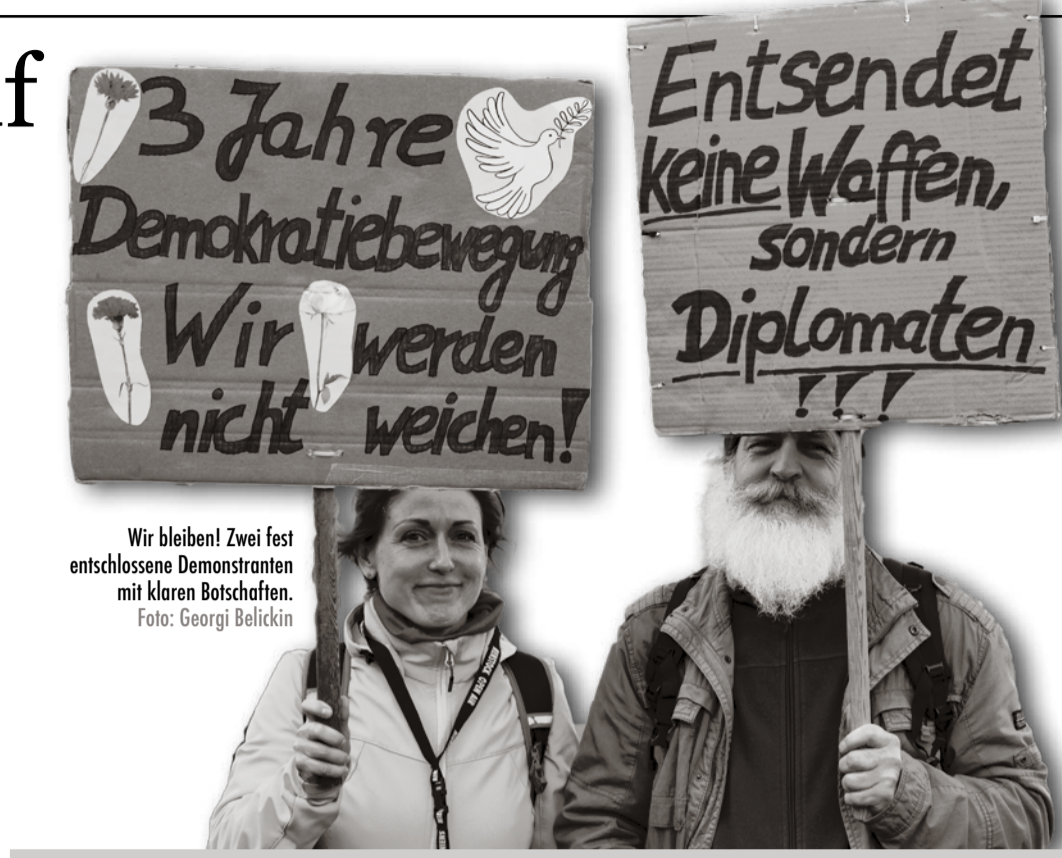 f
3 Jahre
Demokratiebewegung
Wir werden
nicht weichen!
Entsendet
keine Waffen,
sondern
Diplomaten
!!!
Wir bleiben! Zwei fest
entschlossene Demonstranten
mit klaren Botschaften.
Foto: Georgi Belickin
OPEN AIR